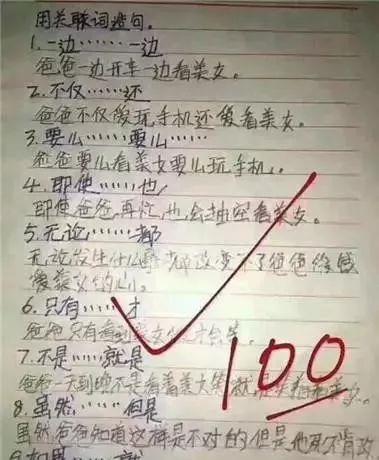 用关联词造句。
1.一边……一边
爸爸一边开车一边看美女。
2.不仅……还
爸爸不仅爱玩手机还爱看美女。
3.要么……要么……
爸爸要么看美女要么玩手机。
4.即使……也
即使爸爸再忙,也会抽空看美女。
5.无论……都
无论发生什么 都改变不了爸爸
爱美女的心。
6.只有……才
爸爸只有看到美女 才会笑。
7.不是……就是
爸爸一天到晚不是看着美女笑就是
8.虽然……但是
虽然爸爸知道这样是不对的但是他死不肯改
9.如果……就
100